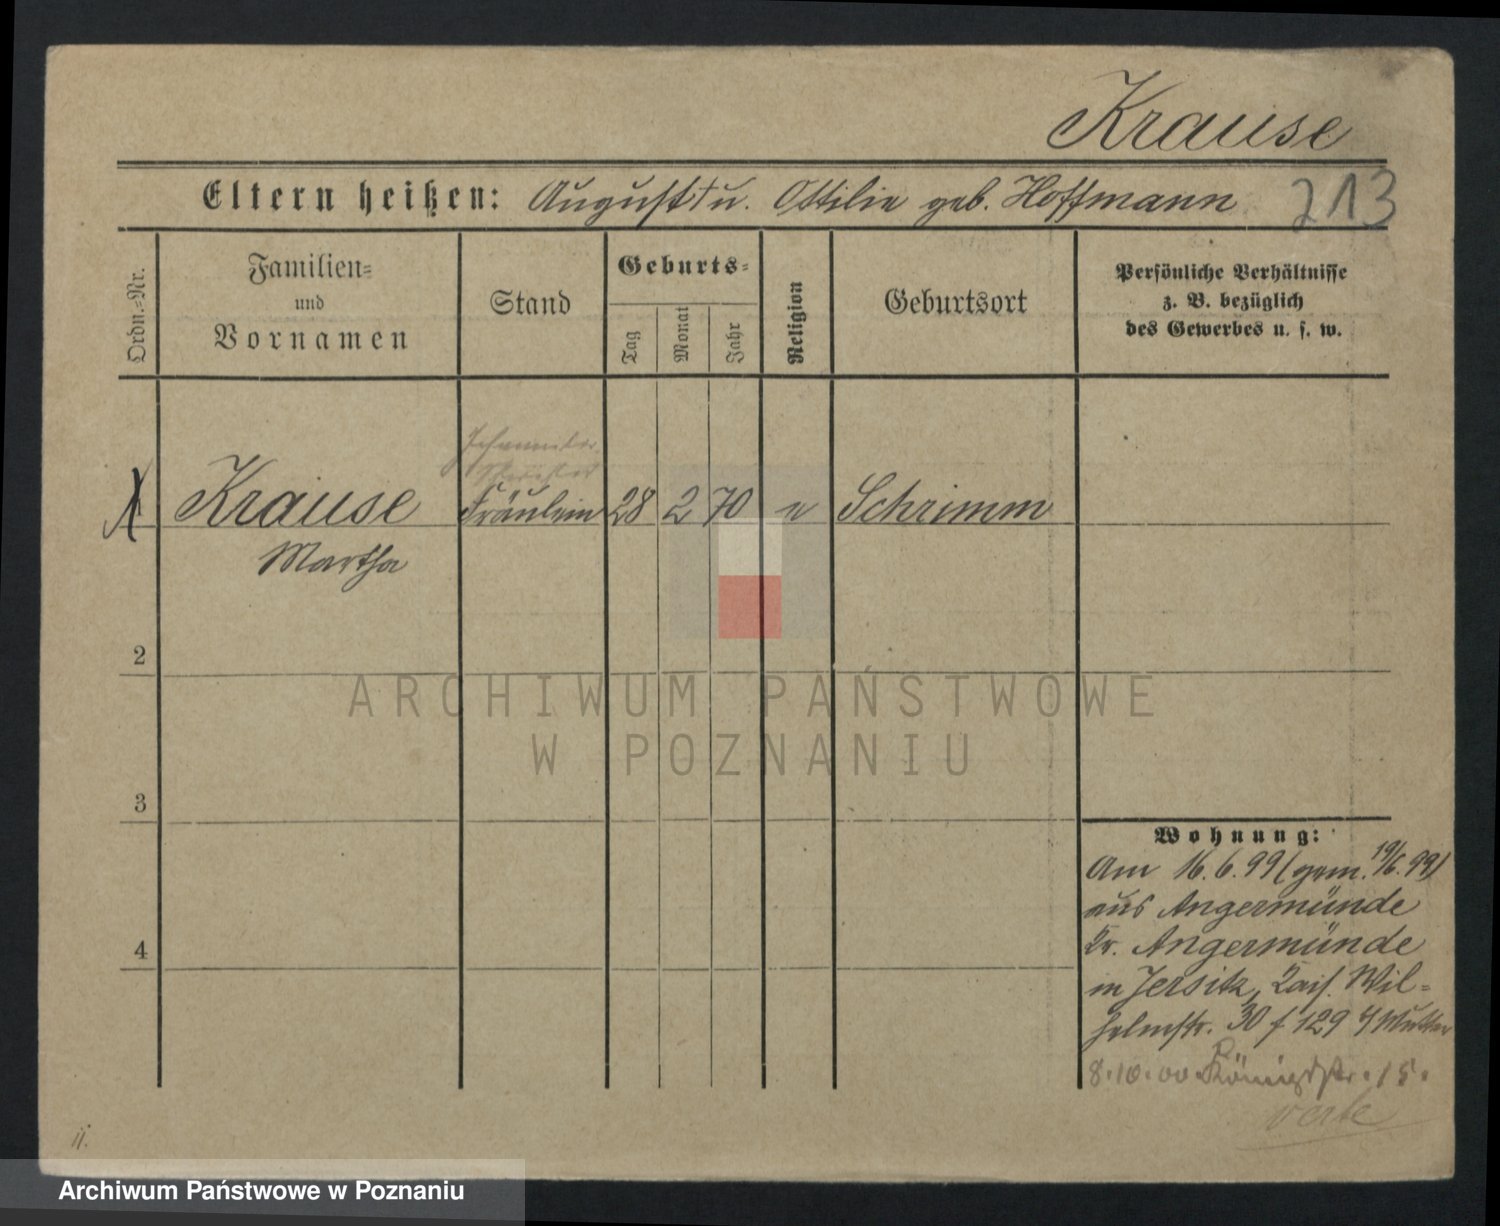 Krause
Eltern heißen: August † u. Ottilie geb. Hoffmann
213
Ordn.-Nr.
Familien-
und
Vornamen
Stand
Geburts-
Tag
Monat
Jahr
Religion
Geburtsort
Persönliche Verhältnisse
z. B. bezüglich
des Gewerbes u. s. w.
Krause Fräulein 28 2 70 e Schrimm
Martha
2
3
4
Wohnung:
Am 16.6.99 (gem. 19/6.99)
aus Angermünde
Kr. Angermünde
in Jersitz, Kais. Wil-
helmstr. 30 f 129 Mutter
8.10.00 Königstr. 15.
verte
ARCHIWUM PAŃSTWOWE
W POZNANIU
Archiwum Państwowe w Poznaniu